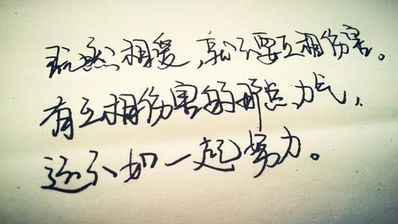 既然相爱,就不要互相伤害。
有互相伤害的那点力气,
还不如一起努力。